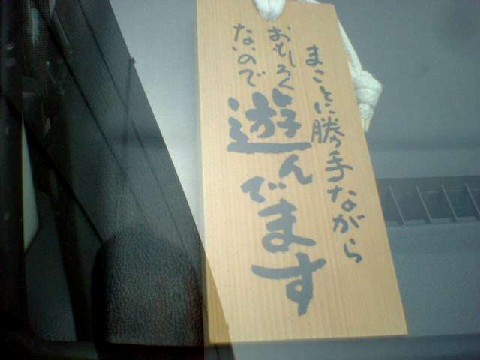 まことに勝手ながら
おもしろく
ないので
遊んでます